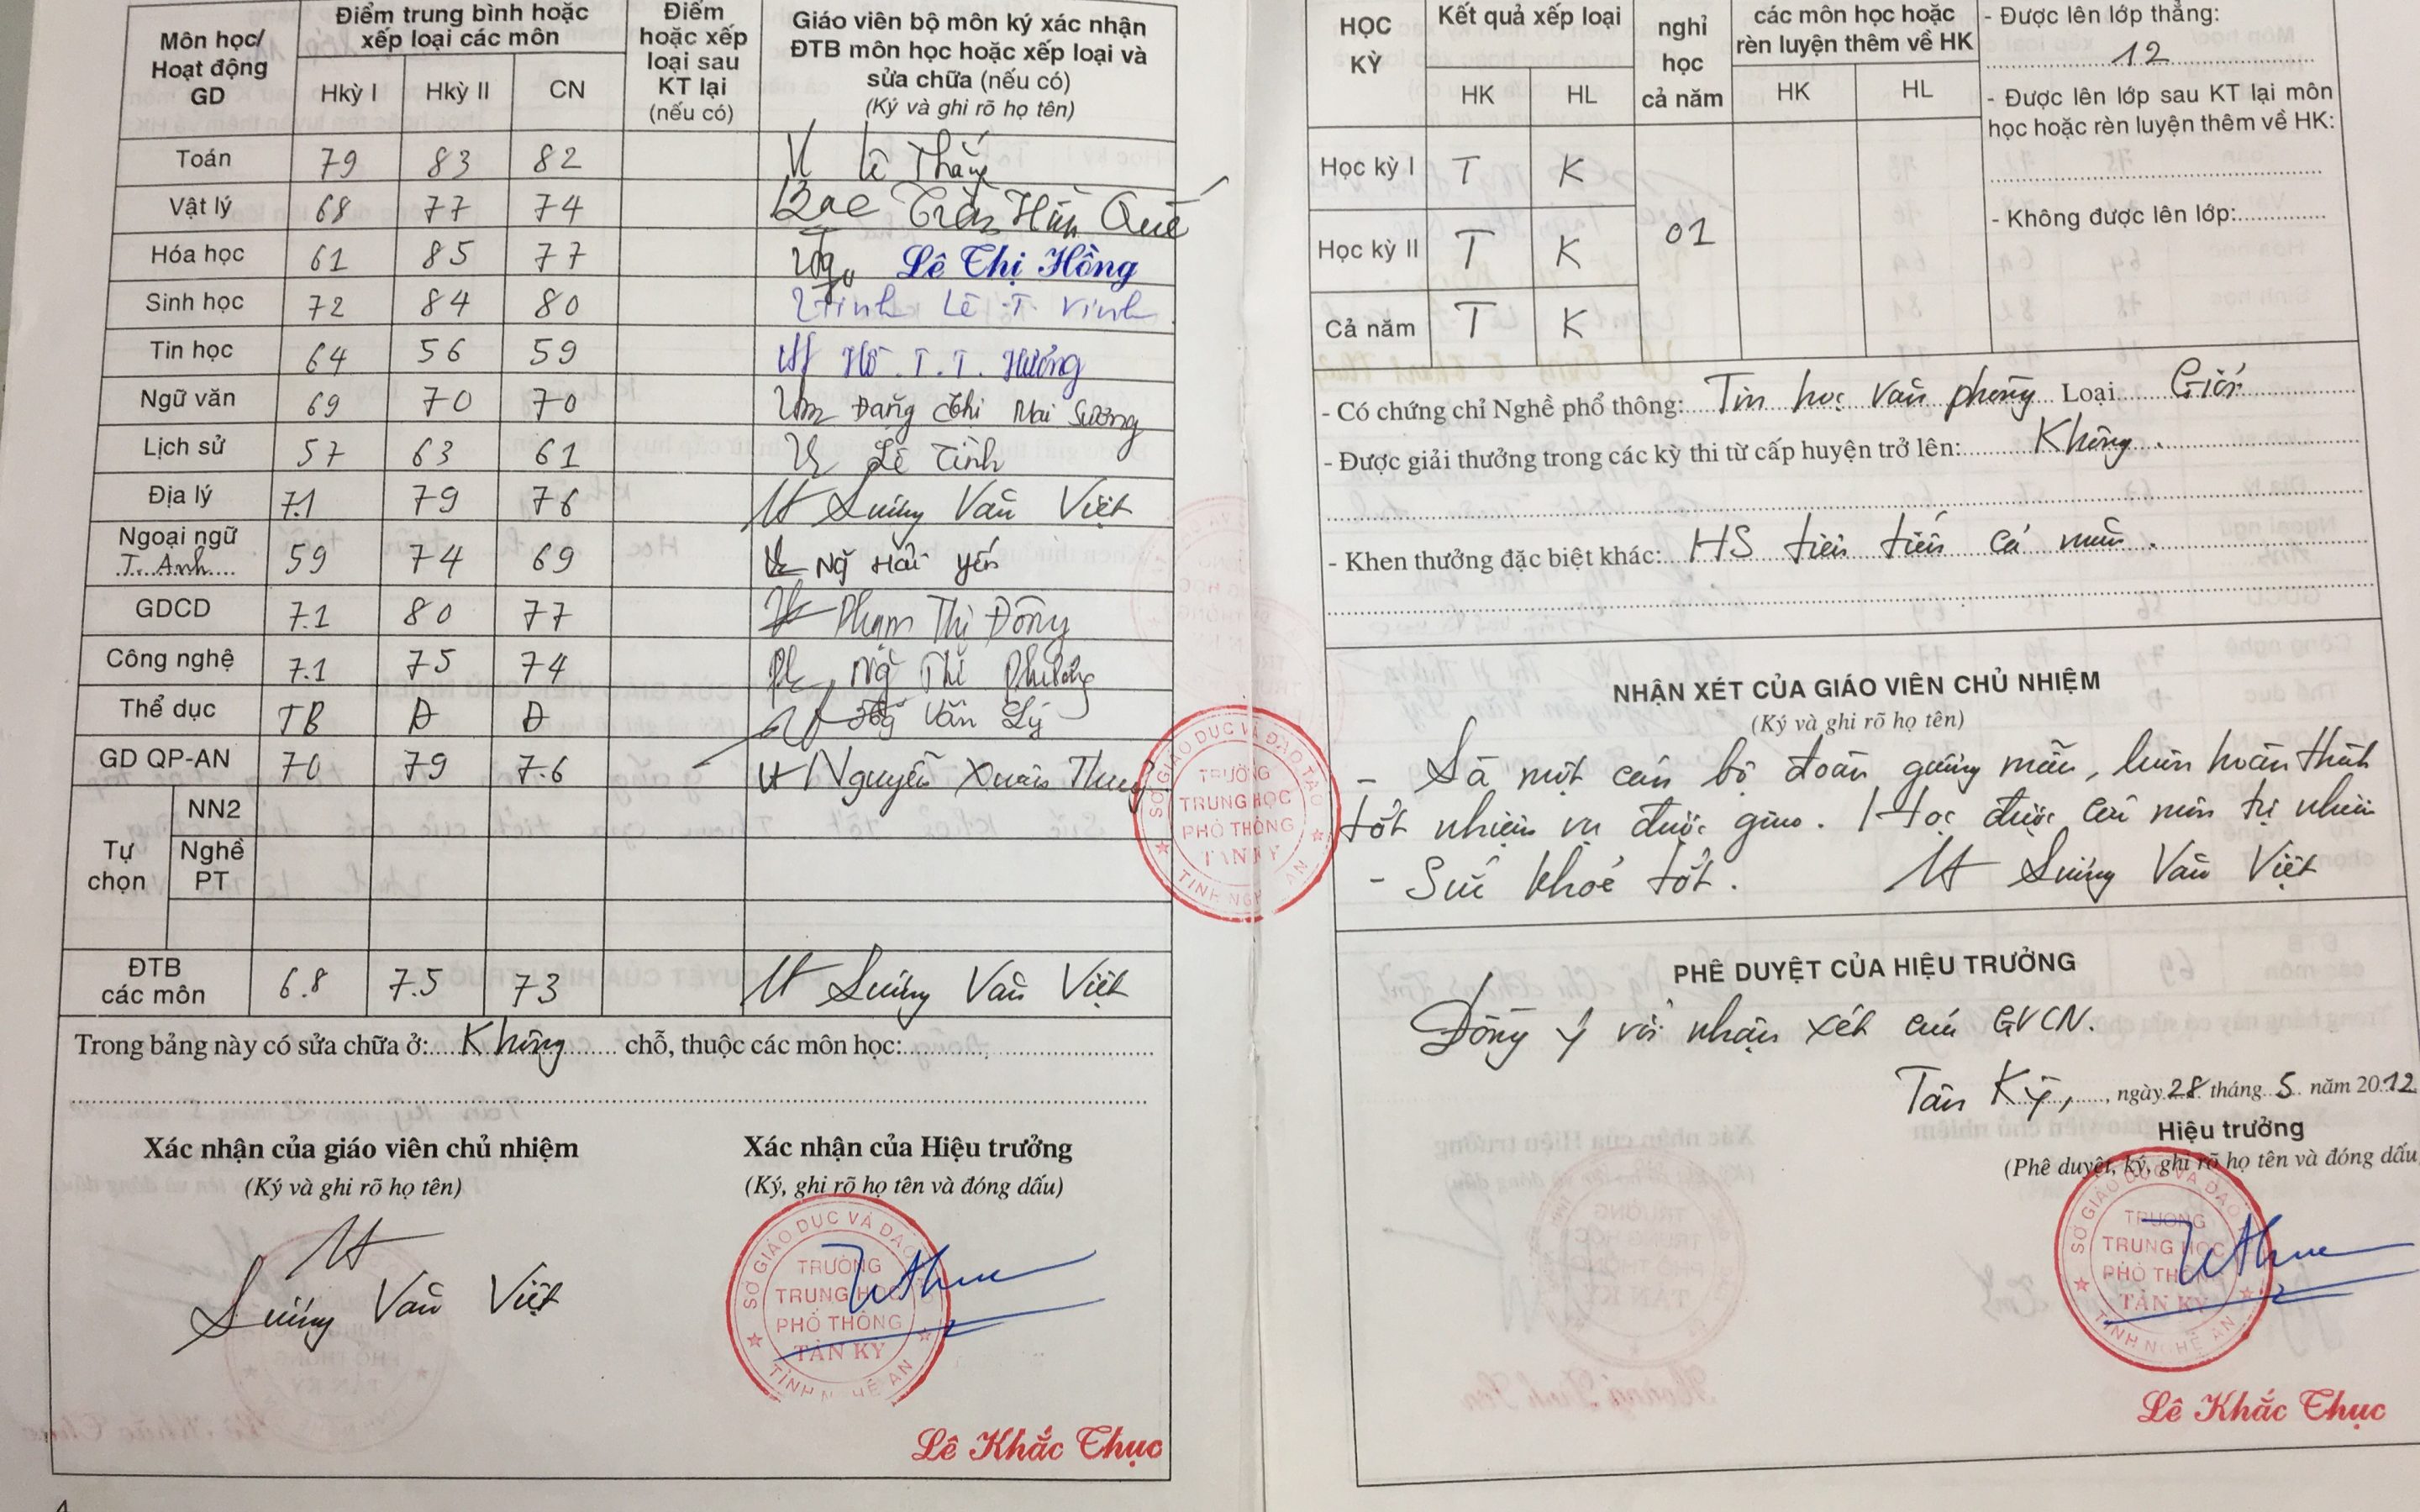 Môn học/ Hoạt động GD
Điểm trung bình hoặc xếp loại các môn
Hkỳ I Hkỳ II CN
Điểm hoặc xếp loại sau KT lại (nếu có)
Giáo viên bộ môn ký xác nhận ĐTB môn học hoặc xếp loại và sửa chữa (nếu có)
(Ký và ghi rõ họ tên)
Toán 79 83 82 Lê Thắng
Vật lý 68 77 74 Trần Hữu Quế
Hóa học 61 85 77 Lê Thị Hồng
Sinh học 72 84 80 Vinh Lê T. Vinh
Tin học 64 56 59 Hồ.T.T. Hưởng
Ngữ văn 69 70 70 Đặng Thị Mai Sương
Lịch sử 57 63 61 Lê Tình
Địa lý 7.1 79 76 Văn Việt
Ngoại ngữ T. Anh 59 74 69 Ng Hải Yến
GDCD 7.1 80 77 Phạm Thị Đông
Công nghệ 7.1 75 74 Ng Thị Phương
Thể dục TB Đ Đ Văn Lý
GD QP-AN 70 79 7.6 Nguyễn Xuân
Tự chọn
NN2
Nghề PT
ĐTB các môn 6.8 7.5 73 Văn Việt
Trong bảng này có sửa chữa ở: Không chỗ, thuộc các môn học:
Xác nhận của giáo viên chủ nhiệm
(Ký và ghi rõ họ tên)
Văn Việt
Xác nhận của Hiệu trưởng
(Ký, ghi rõ họ tên và đóng dấu)
SỞ GIÁO DỤC VÀ ĐÀO
TRƯỜNG
TRUNG HỌC
PHỔ THÔNG
TÂN KỲ
TỈNH NGHỆ AN
Lê Khắc Thục
SỞ GIÁO DỤC VÀ ĐÀO TẠO
TRƯỜNG
TRUNG HỌC
PHỔ THÔNG
TÂN KỲ
TỈNH NGHỆ AN
HỌC KỲ
Kết quả xếp loại
HK HL
nghỉ học cả năm
các môn học hoặc rèn luyện thêm về HK
HK HL
Học kỳ I T K
Học kỳ II T K
Cả năm T K
01
- Được lên lớp thẳng:
12
- Được lên lớp sau KT lại môn
học hoặc rèn luyện thêm về HK:
- Không được lên lớp:
- Có chứng chỉ Nghề phổ thông: Tin học văn phòng Loại Giỏi
- Được giải thưởng trong các kỳ thi từ cấp huyện trở lên: Không.
- Khen thưởng đặc biệt khác: HS tiên tiến cả năm.
NHẬN XÉT CỦA GIÁO VIÊN CHỦ NHIỆM
(Ký và ghi rõ họ tên)
- Là một cán bộ đoàn gương mẫu, luôn hoàn thành
tốt nhiệm vụ được giao. Học được các môn tự nhiên
- Sức khoẻ tốt. Văn Việt
PHÊ DUYỆT CỦA HIỆU TRƯỞNG
Đồng ý với nhận xét của GVCN.
Tân Kỳ, ngày 28 tháng 5 năm 2012
Hiệu trưởng
(Phê duyệt, ký, ghi rõ họ tên và đóng dấu
SỞ GIÁO DỤC VÀ ĐÀO
TRƯỜNG
TRUNG HỌC
PHỔ THÔNG
TÂN KỲ
TỈNH NGHỆ AN
Lê Khắc Thục